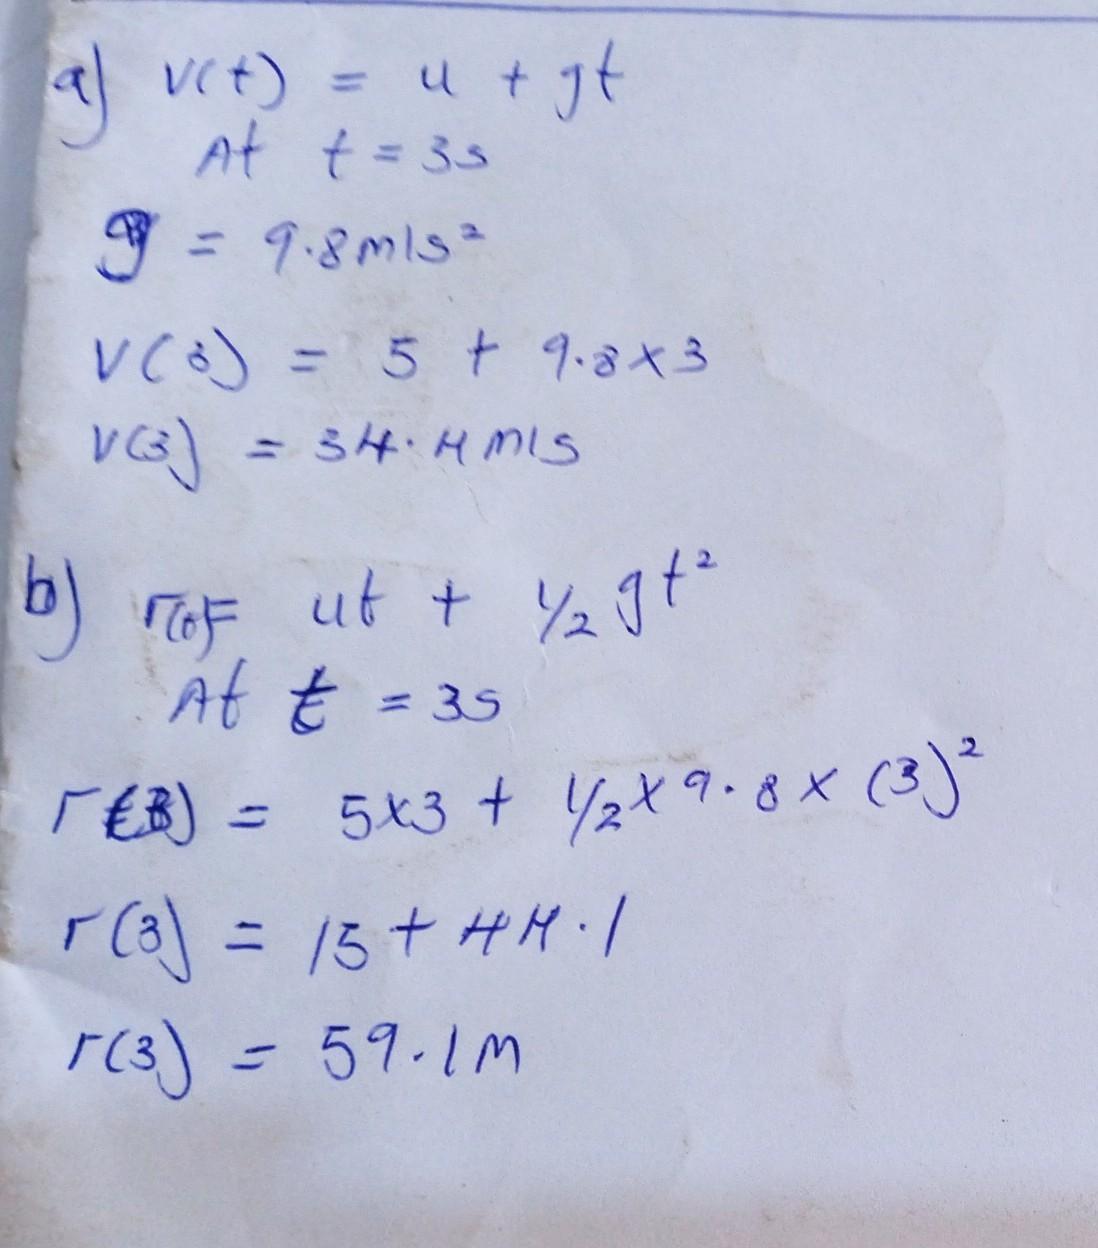 a) v(t) = u + gt
At t = 3s
g = 9.8m/s²
v(3) = 5 + 9.8×3
v(3) = 34.4 m/s
b) r(t)= ut + 1/2 gt²
At t = 3s
r(3) = 5×3 + 1/2×9.8×(3)²
r(3) = 15 + 44.1
r(3) = 59.1m